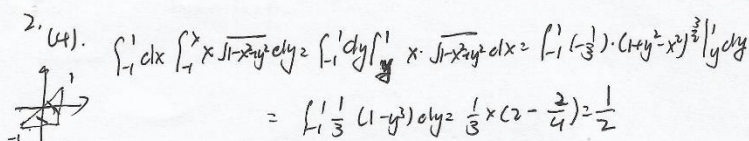 2. (4). ∫_{-1}^{1} dx ∫_{-1}^{x} x √(1-x²+y²) dy = ∫_{-1}^{1} dy ∫_{y}^{1} x·√(1-x²+y²) dx = ∫_{-1}^{1} (-1/3)·(1+y²-x²)^{3/2} |_{y}^{1} dy
= ∫_{-1}^{1} 1/3 (1-y³) dy = 1/3 × (2 - 2/4) = 1/2
1
-1